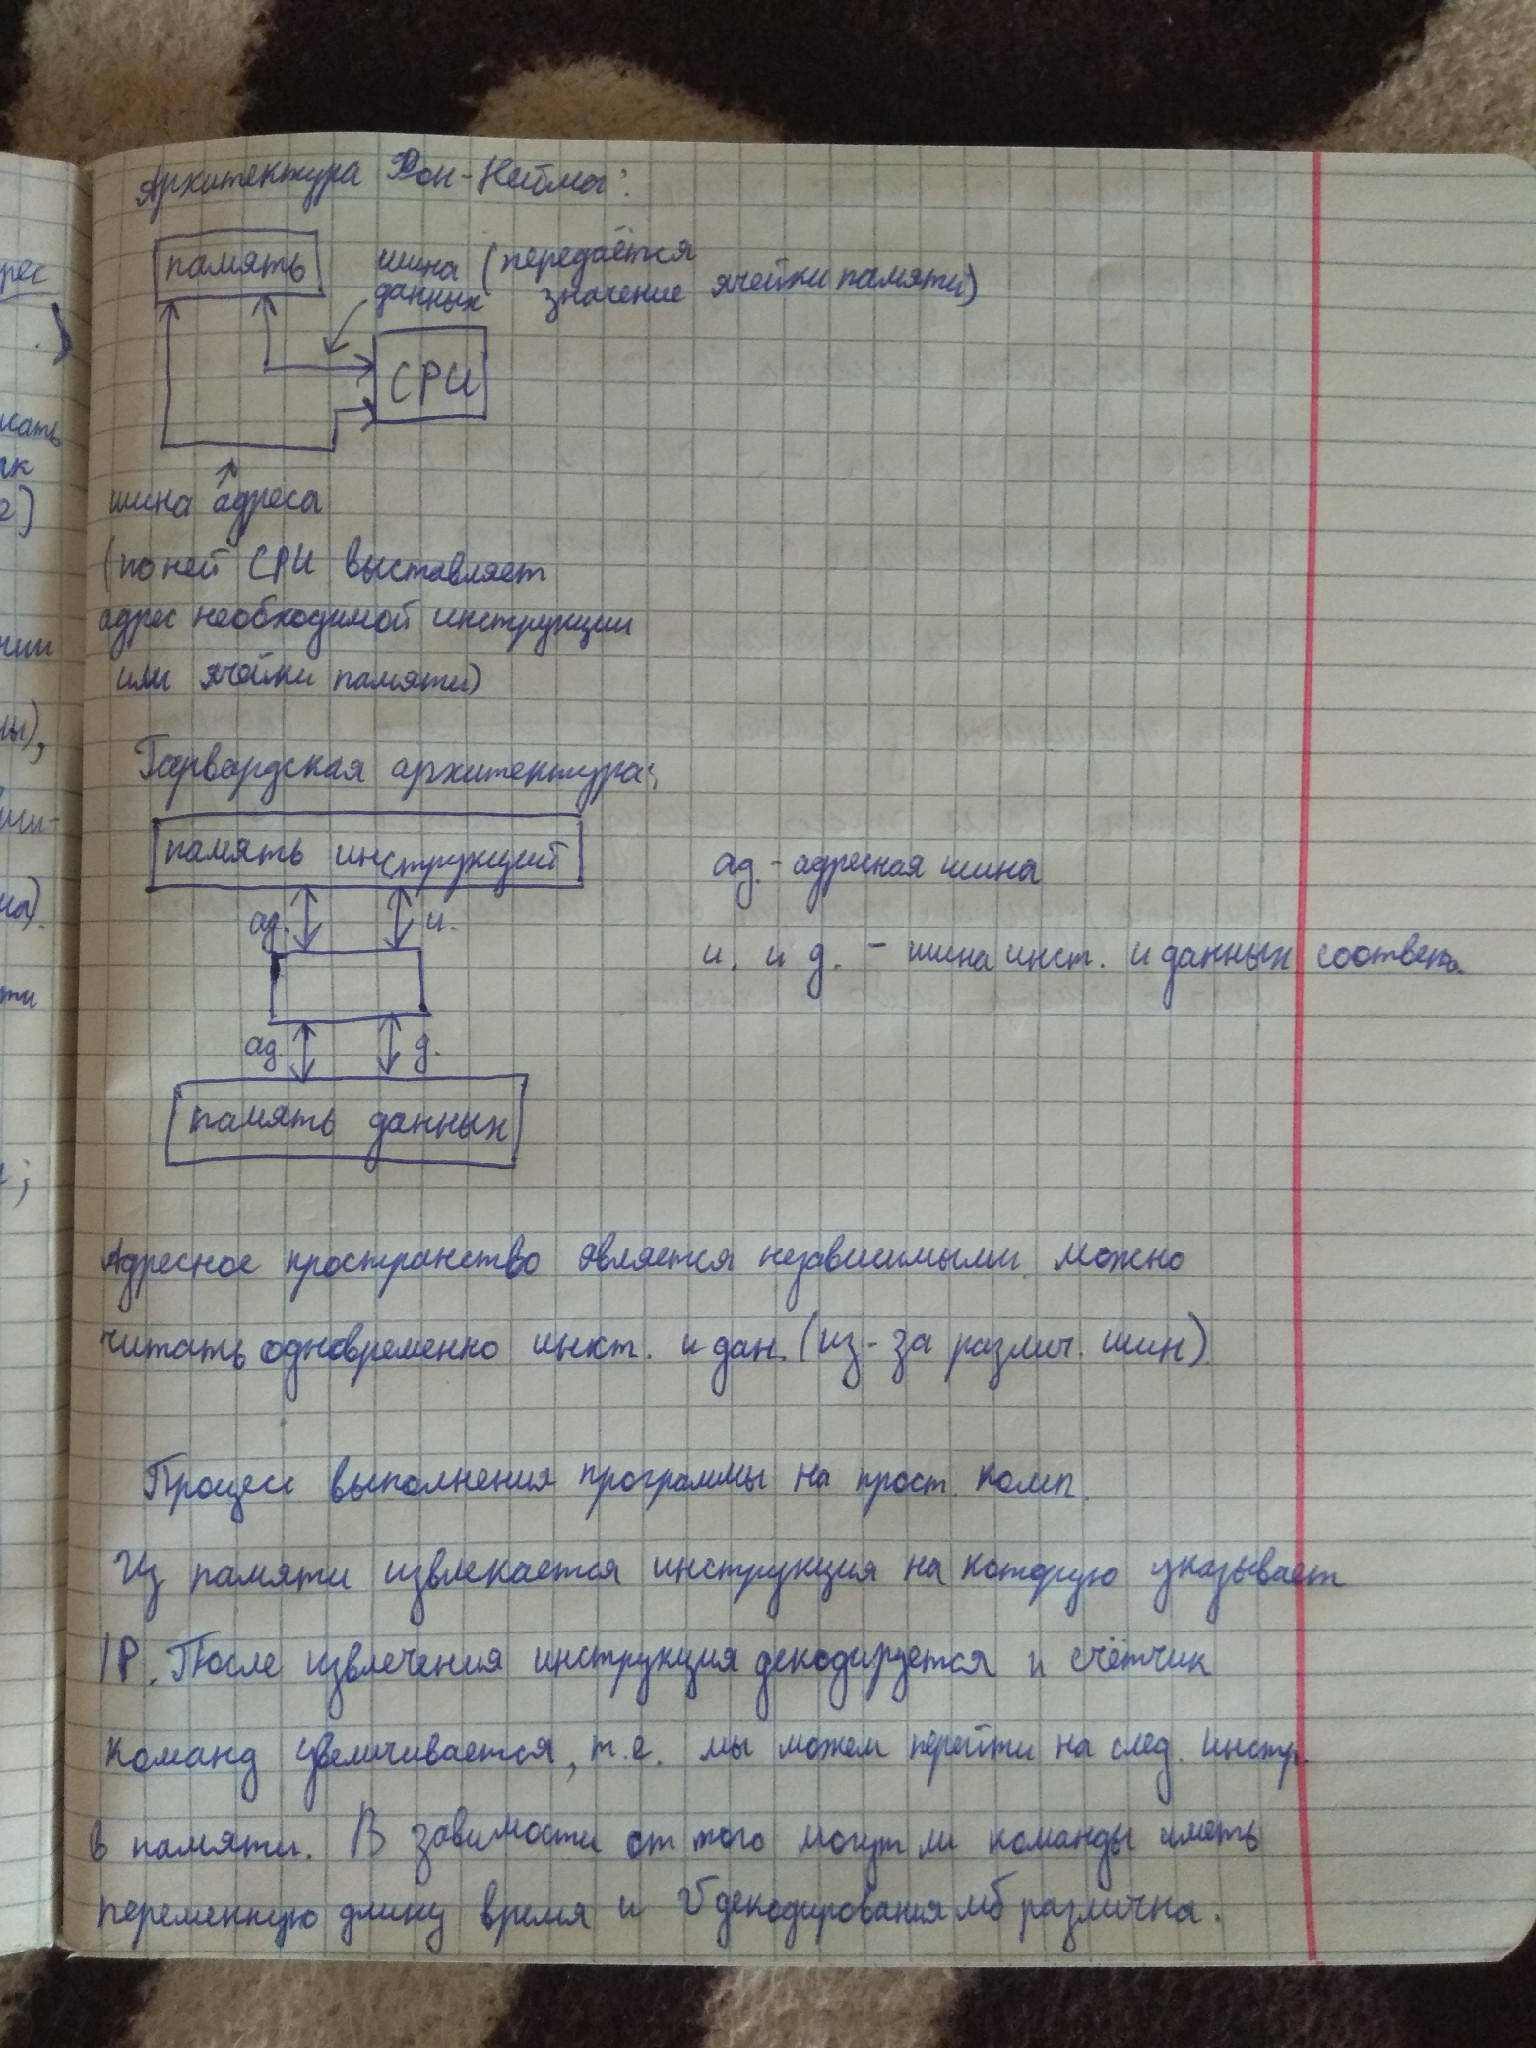 Архитектура Фон-Неймa:
память
шина (передаётся
данных значение ячейки памяти)
CPU
шина адреса
(по ней CPU выставляет
адрес необходимой инструкции
или ячейки памяти)
Гарвардская архитектура:
память инструкций
ад. - адресная шина
ад. и.
и. и д. - шина инст. и данных соответв.
ад. д.
память данных
Адресное пространство является независимыми. можно
читать одновременно инкт. и дан. (из-за различ. шин)
Процесс выполнения программы на прост. комп.
Из памяти извлекается инструкция на которую указывает
IP. После извлечения инструкция декодируется и счётчик
команд увеличивается, т.е. мы можем перейти на след. инстр.
в памяти. В завимости от того могут ли команды иметь
переменную длину время и декодирования мб различна.
рес
сать
ак
2)
нии
ны),
на).
ти